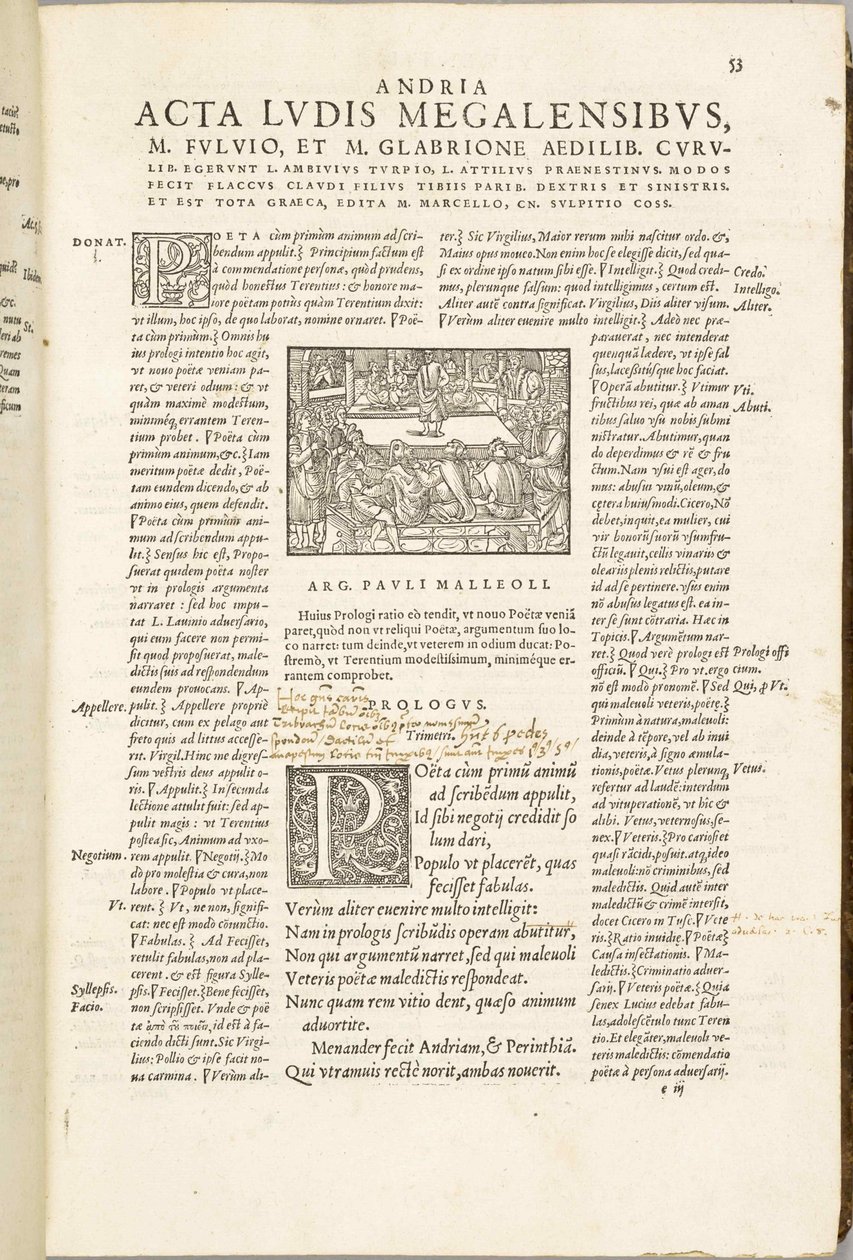 53
ANDRIA
ACTA LVDIS MEGALENSIBVS,
M. FVLVIO, ET M. GLABRIONE AEDILIB. CVRV-
LIB. EGERVNT L. AMBIVIVS TVRPIO, L. ATTILIVS PRAENESTINVS. MODOS
FECIT FLACCVS CLAVDI FILIVS TIBIIS PARIB. DEXTRIS ET SINISTRIS.
ET EST TOTA GRAECA, EDITA M. MARCELLO, CN. SVLPITIO COSS.
DONAT.
POETA cùm primùm animum ad scri-
bendum appulit.⁆ Principium factum est
à commendatione personæ, quòd prudens,
quòd honestus Terentius: & honore ma-
iore poëtam potiùs quàm Terentium dixit:
vt illum, hoc ipso, de quo laborat, nomine ornaret. ⁋Poë-
ta cùm primum.⁆ Omnis hu
ius prologi intentio hoc agit,
vt nouo poëtæ veniam pa-
ret, & veteri odium: & vt
quàm maximè modestum,
miniméq; errantem Teren-
tium probet. ⁋Poëta cùm
primùm animum, &c.⁆ Iam
meritum poëtæ dedit, Poë-
tam eundem dicendo, & ab
animo eius, quem defendit.
⁋Poëta cùm primùm ani-
mum ad scribendum appu-
lit.⁆ Sensus hic est, Propo-
suerat quidem poëta noster
vt in prologis argumenta
narraret: sed hoc impu-
tat L. Lauinio aduersario,
qui eum facere non permi-
sit quod proposuerat, male-
dictis suis ad respondendum
eundem prouocans. ⁋Ap-
Appellere.
pulit.⁆ Appellere propriè
dicitur, cum ex pelago aut
freto quis ad littus accesse-
rit. Virgil. Hinc me digres-
sum vestris deus appulit o-
ris. ⁋Appulit.⁆ In secunda
lectione attulit fuit: sed ap-
pulit magis: vt Terentius
postea sic, Animum ad vxo-
Negotium.
rem appulit. ⁋Negotij.⁆ Mo
dò pro molestia & cura, non
labore. ⁋Populo vt place-
Vt.
rent.⁆ Vt, ne non, signifi-
cat: nec est modò cōiunctio.
⁋Fabulas.⁆ Ad Fecisset,
retulit fabulas, non ad pla-
cerent. & est figura Sylle-
Syllepsis.
psis. ⁋Fecisset.⁆ Bene fecisset,
Facio.
non scripsisset. Vnde & poë
tæ ἀπὸ τῦ ποιεῖν, id est à fa-
ciendo dicti sunt. Sic Virgi-
lius: Pollio & ipse facit no-
ua carmina. ⁋Verùm ali-
ter.⁆ Sic Virgilius, Maior rerum mihi nascitur ordo. &,
Maius opus moueo. Non enim hoc se elegisse dicit, sed qua-
si ex ordine ipso natum sibi esse. ⁋Intelligit.⁆ Quod credi-
Credo.
mus, plerunque falsum: quod intelligimus, certum est.
Intelligo.
Aliter autē contra significat. Virgilius, Diis aliter visum.
Aliter.
⁋Verùm aliter euenire multo intelligit.⁆ Adeò nec præ-
parauerat, nec intenderat
quenquā lædere, vt ipse fal
sus, lacessitúsque hoc faciat.
⁋Operā abutitur.⁆ Vtimur
Vti.
fructibus rei, quæ ab aman
Abuti.
tibus saluo vsu nobis submi
nistratur. Abutimur, quan
do deperdimus & rē & fru
ctum. Nam vsui est ager, do
mus: abusui vinū, oleum, &
cętera huiusmodi. Cicero, Nō
debet, inquit, ea mulier, cui
vir bonorū suorū vsumfru-
ctū legauit, cellis vinariis &
oleariis plenis relictis, putare
id ad se pertinere. vsus enim
nō abusus legatus est. ea in-
ter se sunt cōtraria. Hæc in
Topicis. ⁋Argumētum nar-
ret.⁆ Quod verè prologi est
Prologi offi
officiū. ⁋Qui.⁆ Pro vt. ergo
cium.
nō est modò pronomē. ⁋Sed
Qui, p Vt.
qui maleuoli veteris, poëtę.⁆
Primùm à natura, maleuoli:
deinde à tēpore, vel ab inui
dia, veteris, à signo æmula-
tionis, poëtæ. Vetus plerunq;
Vetus.
refertur ad laudē: interdum
ad vituperationē, vt hîc &
alibi. Vetus, veternosus, se-
nex. ⁋Veteris.⁆ Pro cariosi et
quasi rācidi, posuit. atq; ideo
maleuoli: nō criminibus, sed
maledictis. Quid autē inter
maledictū & crimē intersit,
docet Cicero in Tusc. ⁋Vete
ris.⁆ Ratio inuidię. ⁋Poëtæ⁆
Causa insectationis. ⁋Ma-
ledictis.⁆ Criminatio aduer-
sarij. ⁋Veteris poëtæ.⁆ Quia
senex Lucius edebat fabu-
las, adolescētulo tunc Teren
tio. Et elegāter, maleuoli ve-
teris maledictis: cōmendatio
poëtæ à persona aduersarij.
ARG. PAVLI MALLEOLI.
Huius Prologi ratio eò tendit, vt nouo Poëtæ veniā
paret, quòd non vt reliqui Poëtæ, argumentum suo lo-
co narret: tum deinde, vt veterem in odium ducat: Po-
stremò, vt Terentium modestissimum, miniméque er-
rantem comprobet.
PROLOGVS.
Trimetri.
POëta cùm primū animū
ad scribēdum appulit,
Id sibi negotij credidit so
lum dari,
Populo vt placerēt, quas
fecisset fabulas.
Verùm aliter euenire multo intelligit:
Nam in prologis scribūdis operam abutitur,
Non qui argumentū narret, sed qui maleuoli
Veteris poëtæ maledictis respondeat.
Nunc quam rem vitio dent, quæso animum
aduortite.
Menander fecit Andriam, & Perinthiā.
Qui vtramuis rectè norit, ambas nouerit.
e iij